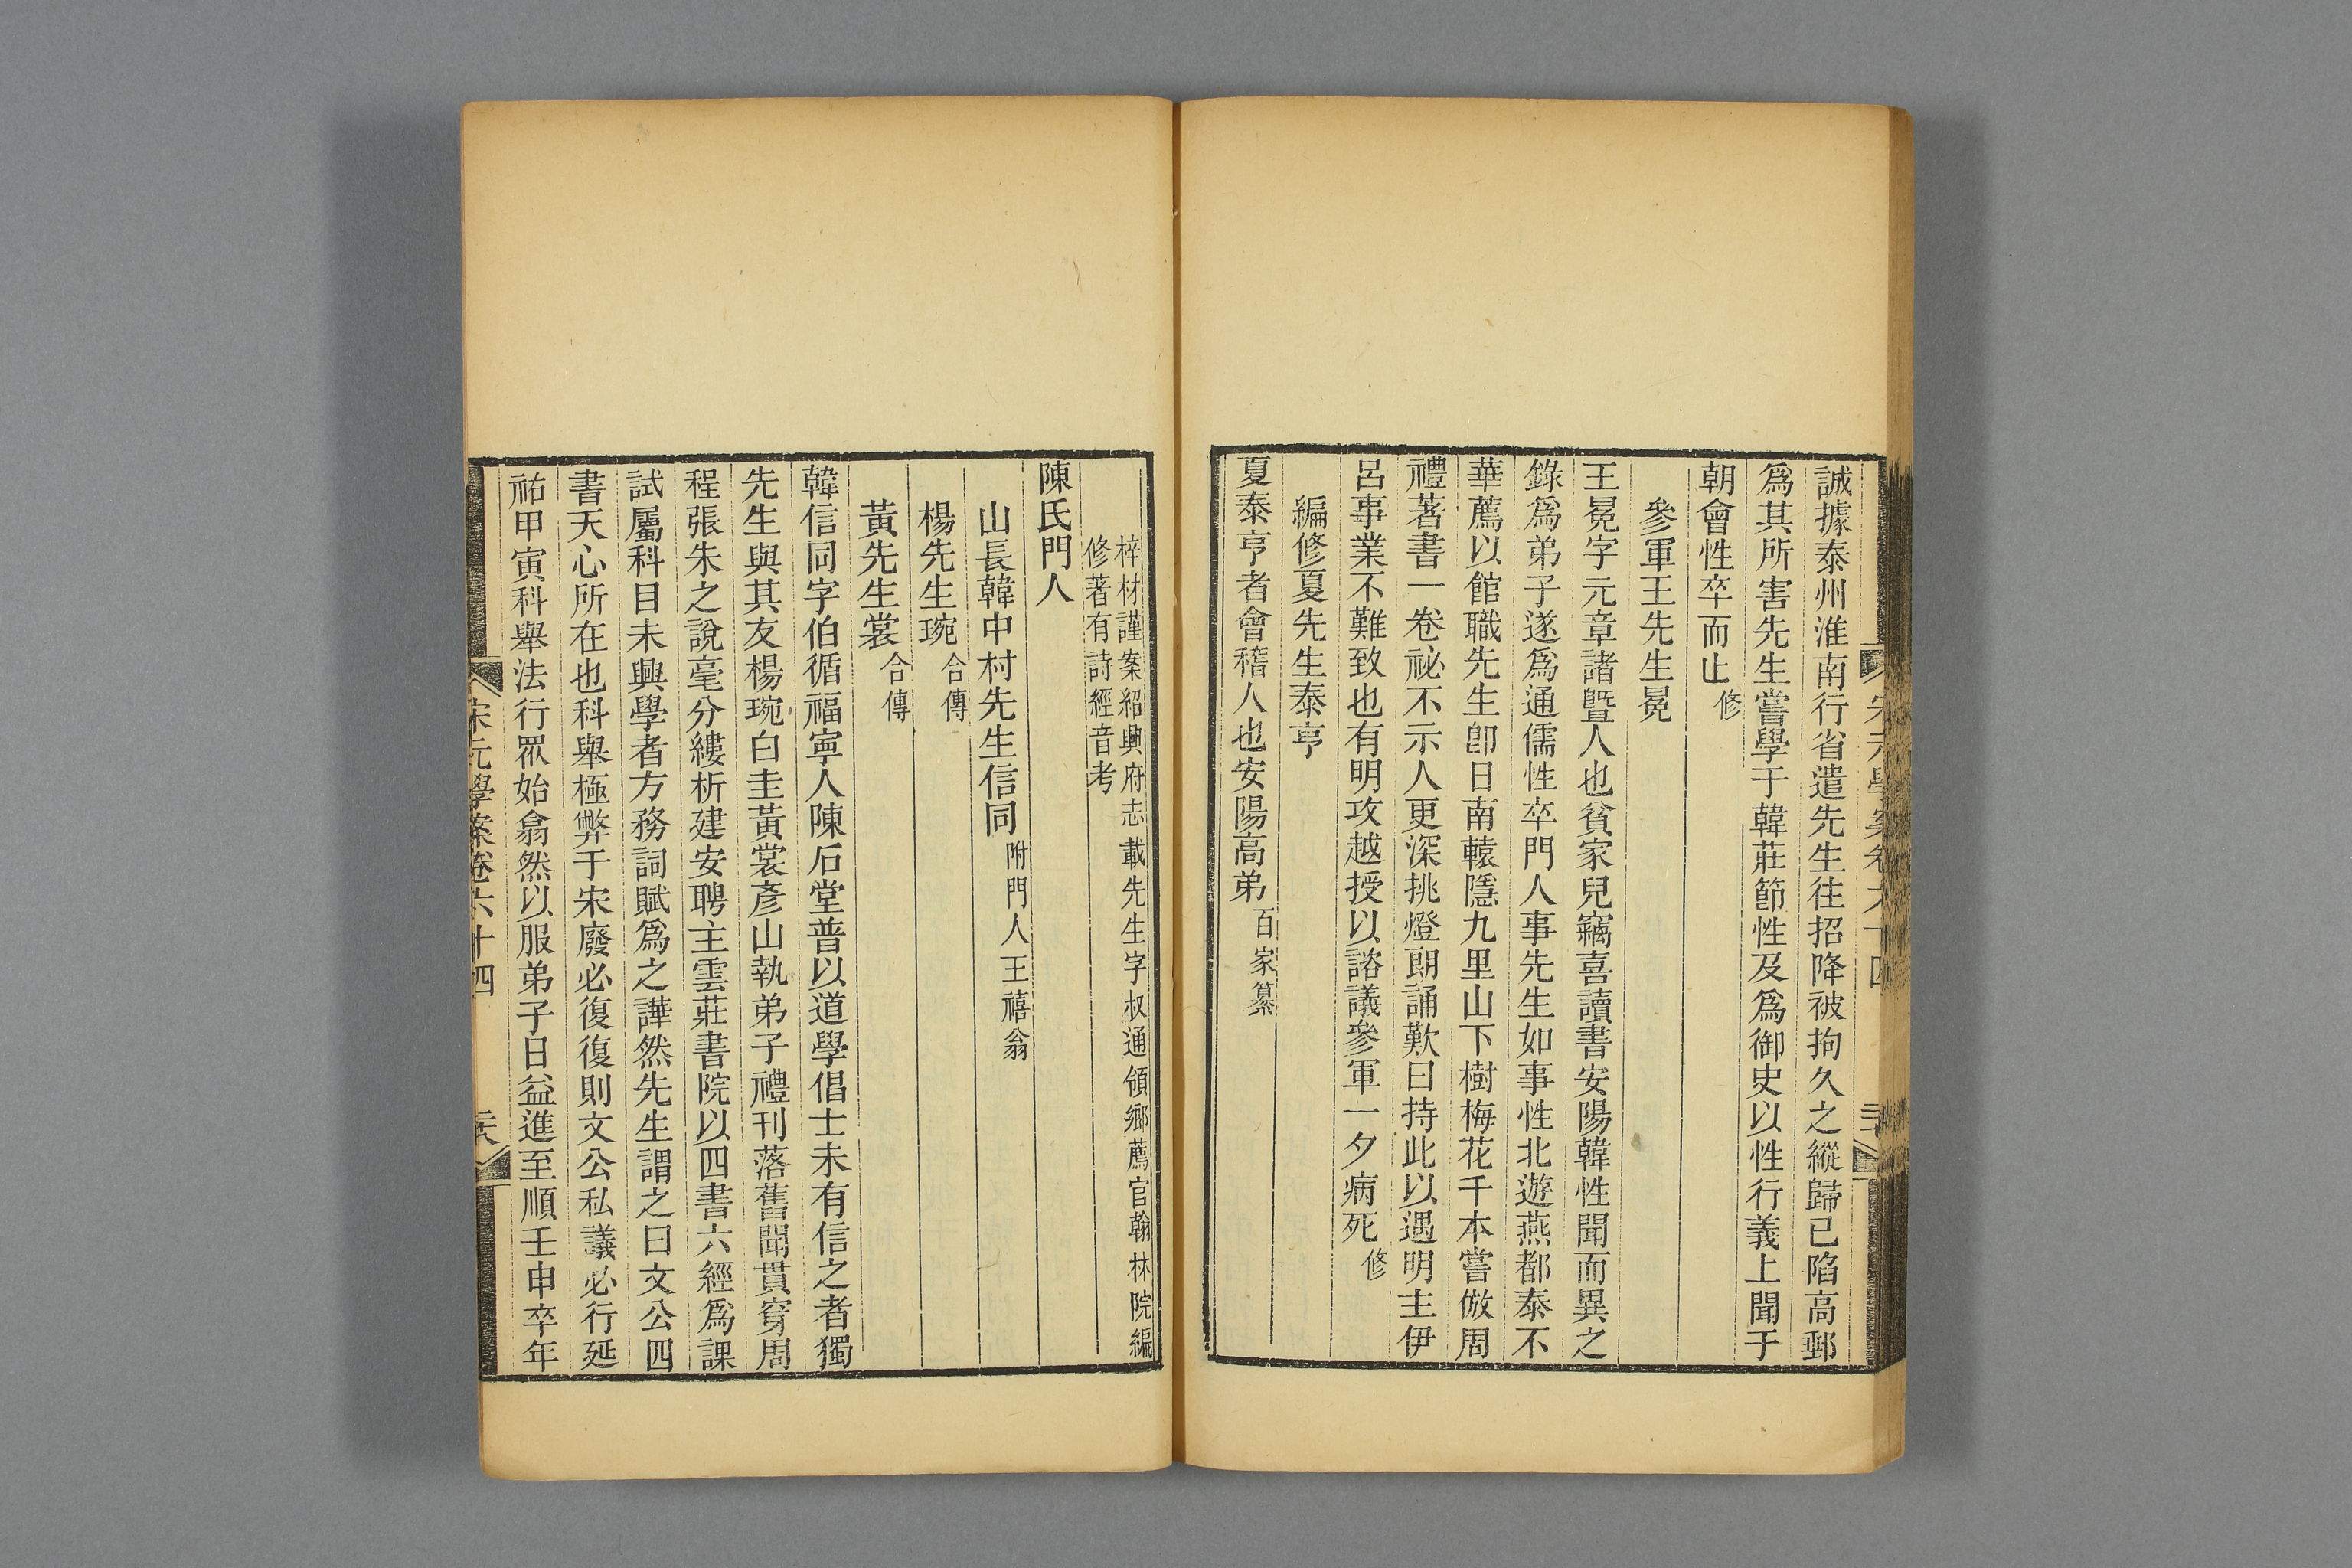 誠據泰州淮南行省遣先生往招降被拘久之縱歸已陷高郵
爲其所害先生嘗學于韓莊節性及爲御史以性行義上聞于
朝會性卒而止修
參軍王先生冕
王冕字元章諸曁人也貧家兒竊喜讀書安陽韓性聞而異之
錄爲弟子遂爲通儒性卒門人事先生如事性北遊燕都泰不
華薦以館職先生卽日南轅隱九里山下樹梅花千本嘗倣周
禮著書一卷祕不示人更深挑燈朗誦歎曰持此以遇明主伊
呂事業不難致也有明攻越授以諮議參軍一夕病死修
編修夏先生泰亨
夏泰亨者會稽人也安陽高弟百家纂
梓材謹案紹興府志載先生字叔通領鄉薦官翰林院編
修著有詩經音考
陳氏門人
山長韓中村先生信同附門人王禧翁
楊先生琬合傳
黃先生裳合傳
韓信同字伯循福寧人陳石堂普以道學倡士未有信之者獨
先生與其友楊琬白圭黃裳彥山執弟子禮刊落舊聞貫穿周
程張朱之說毫分縷析建安聘主雲莊書院以四書六經爲課
試屬科目未興學者方務詞賦爲之譁然先生謂之曰文公四
書天心所在也科舉極弊于宋廢必復復則文公私議必行延
祐甲寅科舉法行眾始翕然以服弟子日益進至順壬申卒年
宋元學案卷六十四